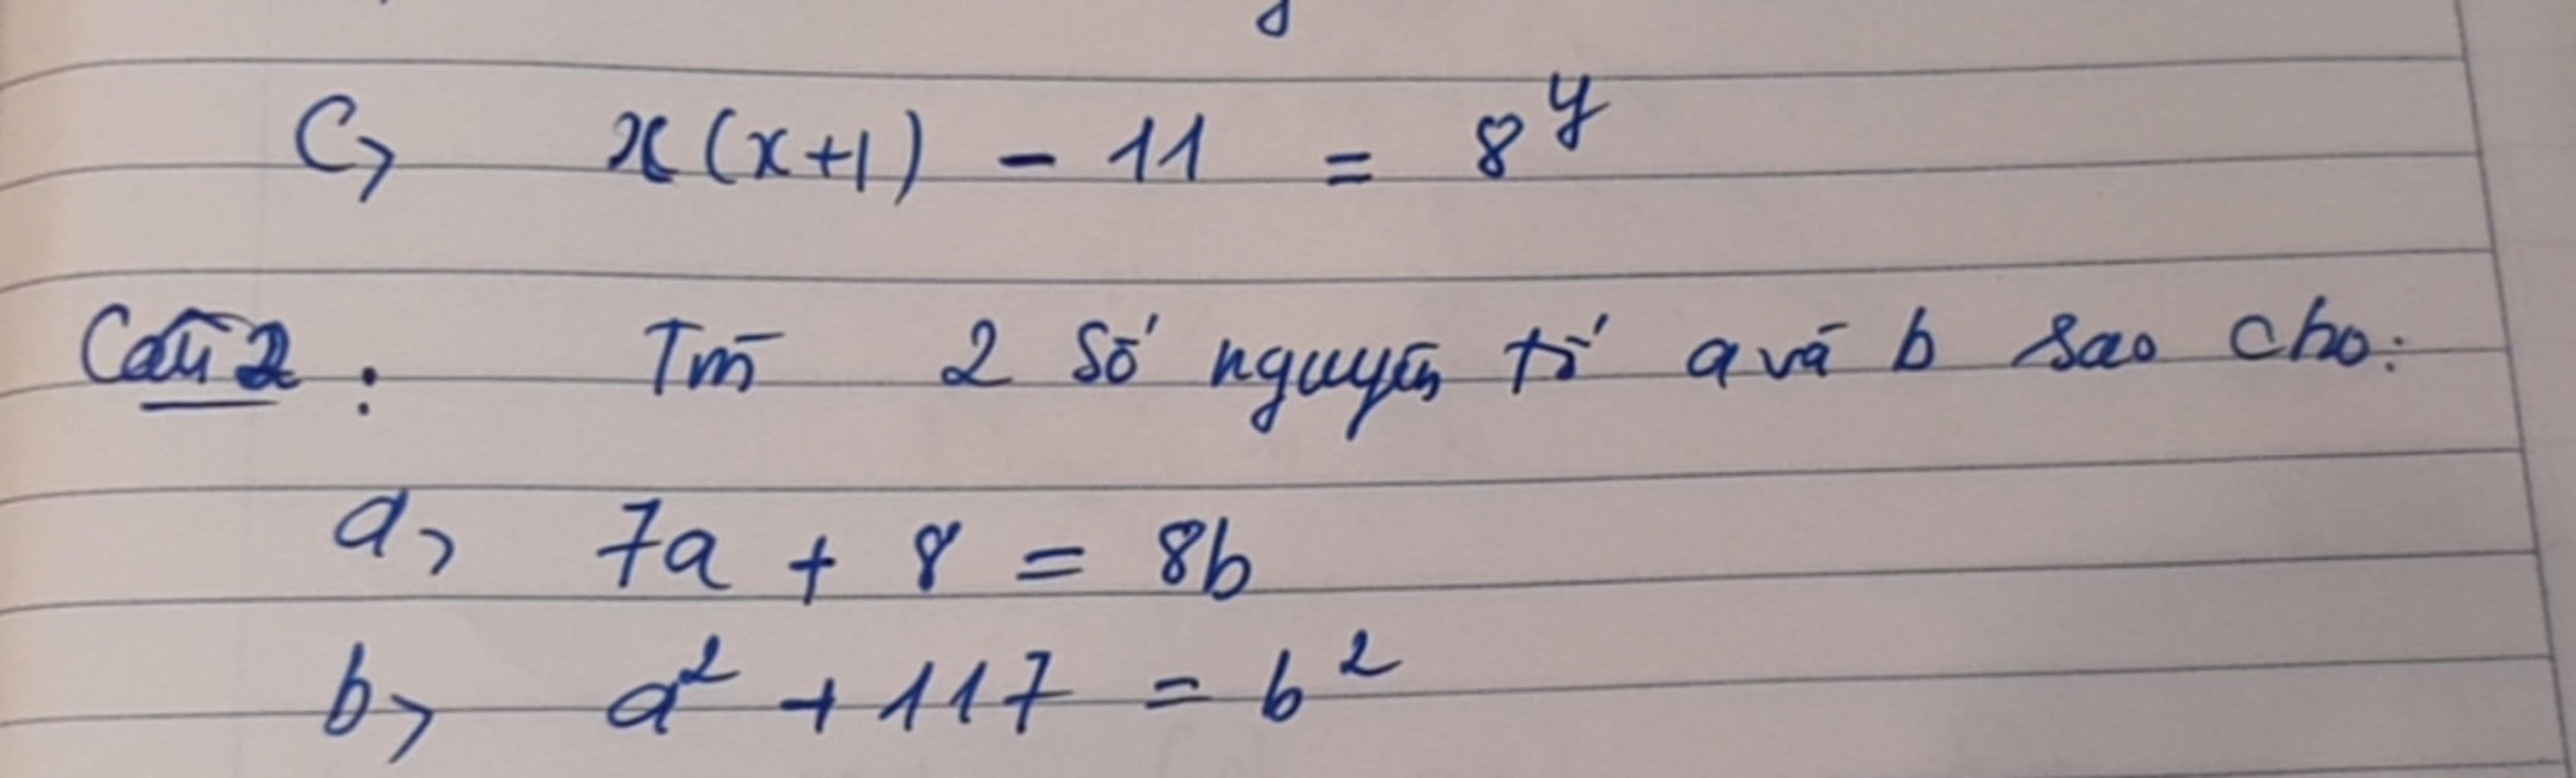 C) x(x+1) - 11 = 8^y
Câu 2 : Tìm 2 số nguyên tố a và b sao cho:
a) 7a + 8 = 8b
b) a² + 117 = b²